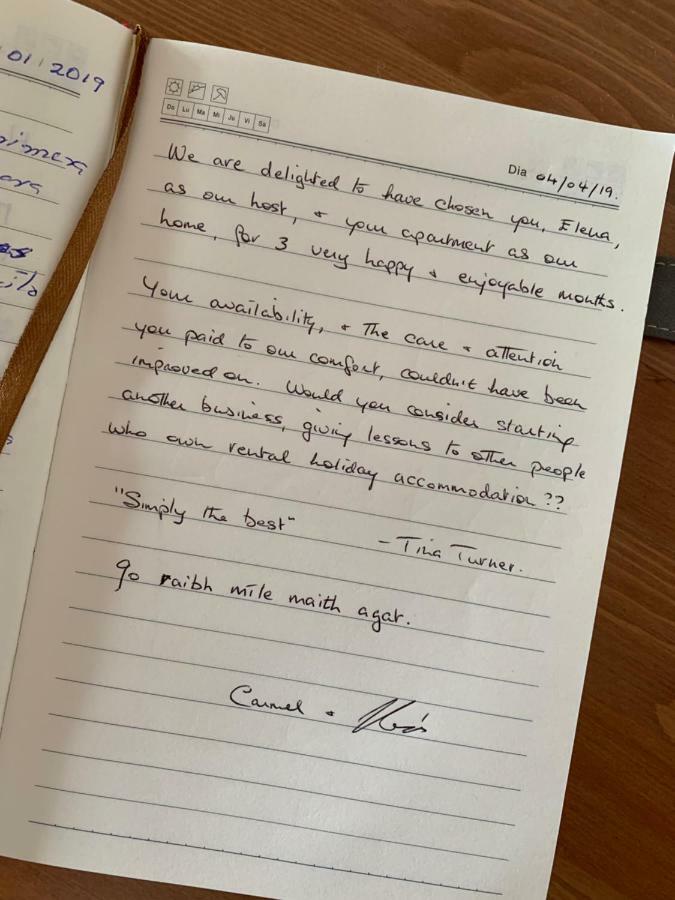 01 2019
Do Lu Ma Mi Ju Vi Sa
Dia 04/04/19.
We are delighted to have chosen you, Elena,
as our host, & your apartment as our
home, for 3 very happy & enjoyable months.
Your availability, & the care & attention
you paid to our comfort, couldn't have been
improved on. Would you consider starting
another business, giving lessons to other people
who own rental holiday accommodation ??
"Simply the best"
- Tina Turner.
Go raibh mīle maith agat.
Carmel &